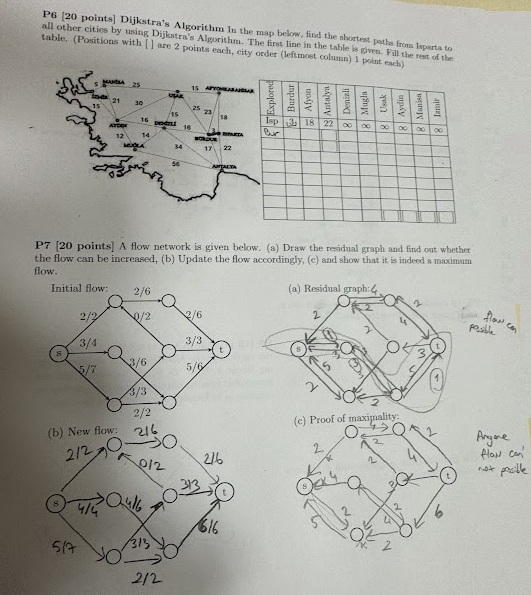 P6 [20 points] Dijkstra's Algorithm In the map below, find the shortest paths from Isparta to
all other cities by using Dijkstra's Algorithm. The first line in the table is given. Fill the rest of the
table. (Positions with [ ] are 2 points each, city order (leftmost column) 1 point each)
5 MANISA 25
15 AFYONKARAHISAR
IZMIR
UŞAK
15 21 30 15 25 23 18
AYDIN 16 DENIZLI 16 ISPARTA
BURDUR
12 14 34 17 22
MUGLA
56 ANTALYA
Explored Burdur Afyon Antalya Denizli Mugla Usak Aydin Manisa Izmir
Isp 3 18 22 ∞ ∞ ∞ ∞ ∞ ∞
Bur
P7 [20 points] A flow network is given below. (a) Draw the residual graph and find out whether
the flow can be increased, (b) Update the flow accordingly, (c) and show that it is indeed a maximum
flow.
Initial flow:
2/6
2/2 0/2 2/6
3/4 3/3
s t
5/7 3/6 5/6
3/3
2/2
(a) Residual graph:
4
2 2 2
2 4
s 3 3 t
5 5 1
2 2
flow can
possible
(b) New flow:
2/6
2/2 0/2 2/6
s 4/4 4/6 3/3 t
5/7 3/3 6/6
2/2
(c) Proof of maximality:
4 2
2 2 4
s 4 3 t
5 2 4 2 6
2
Anymore
flow can
not possible